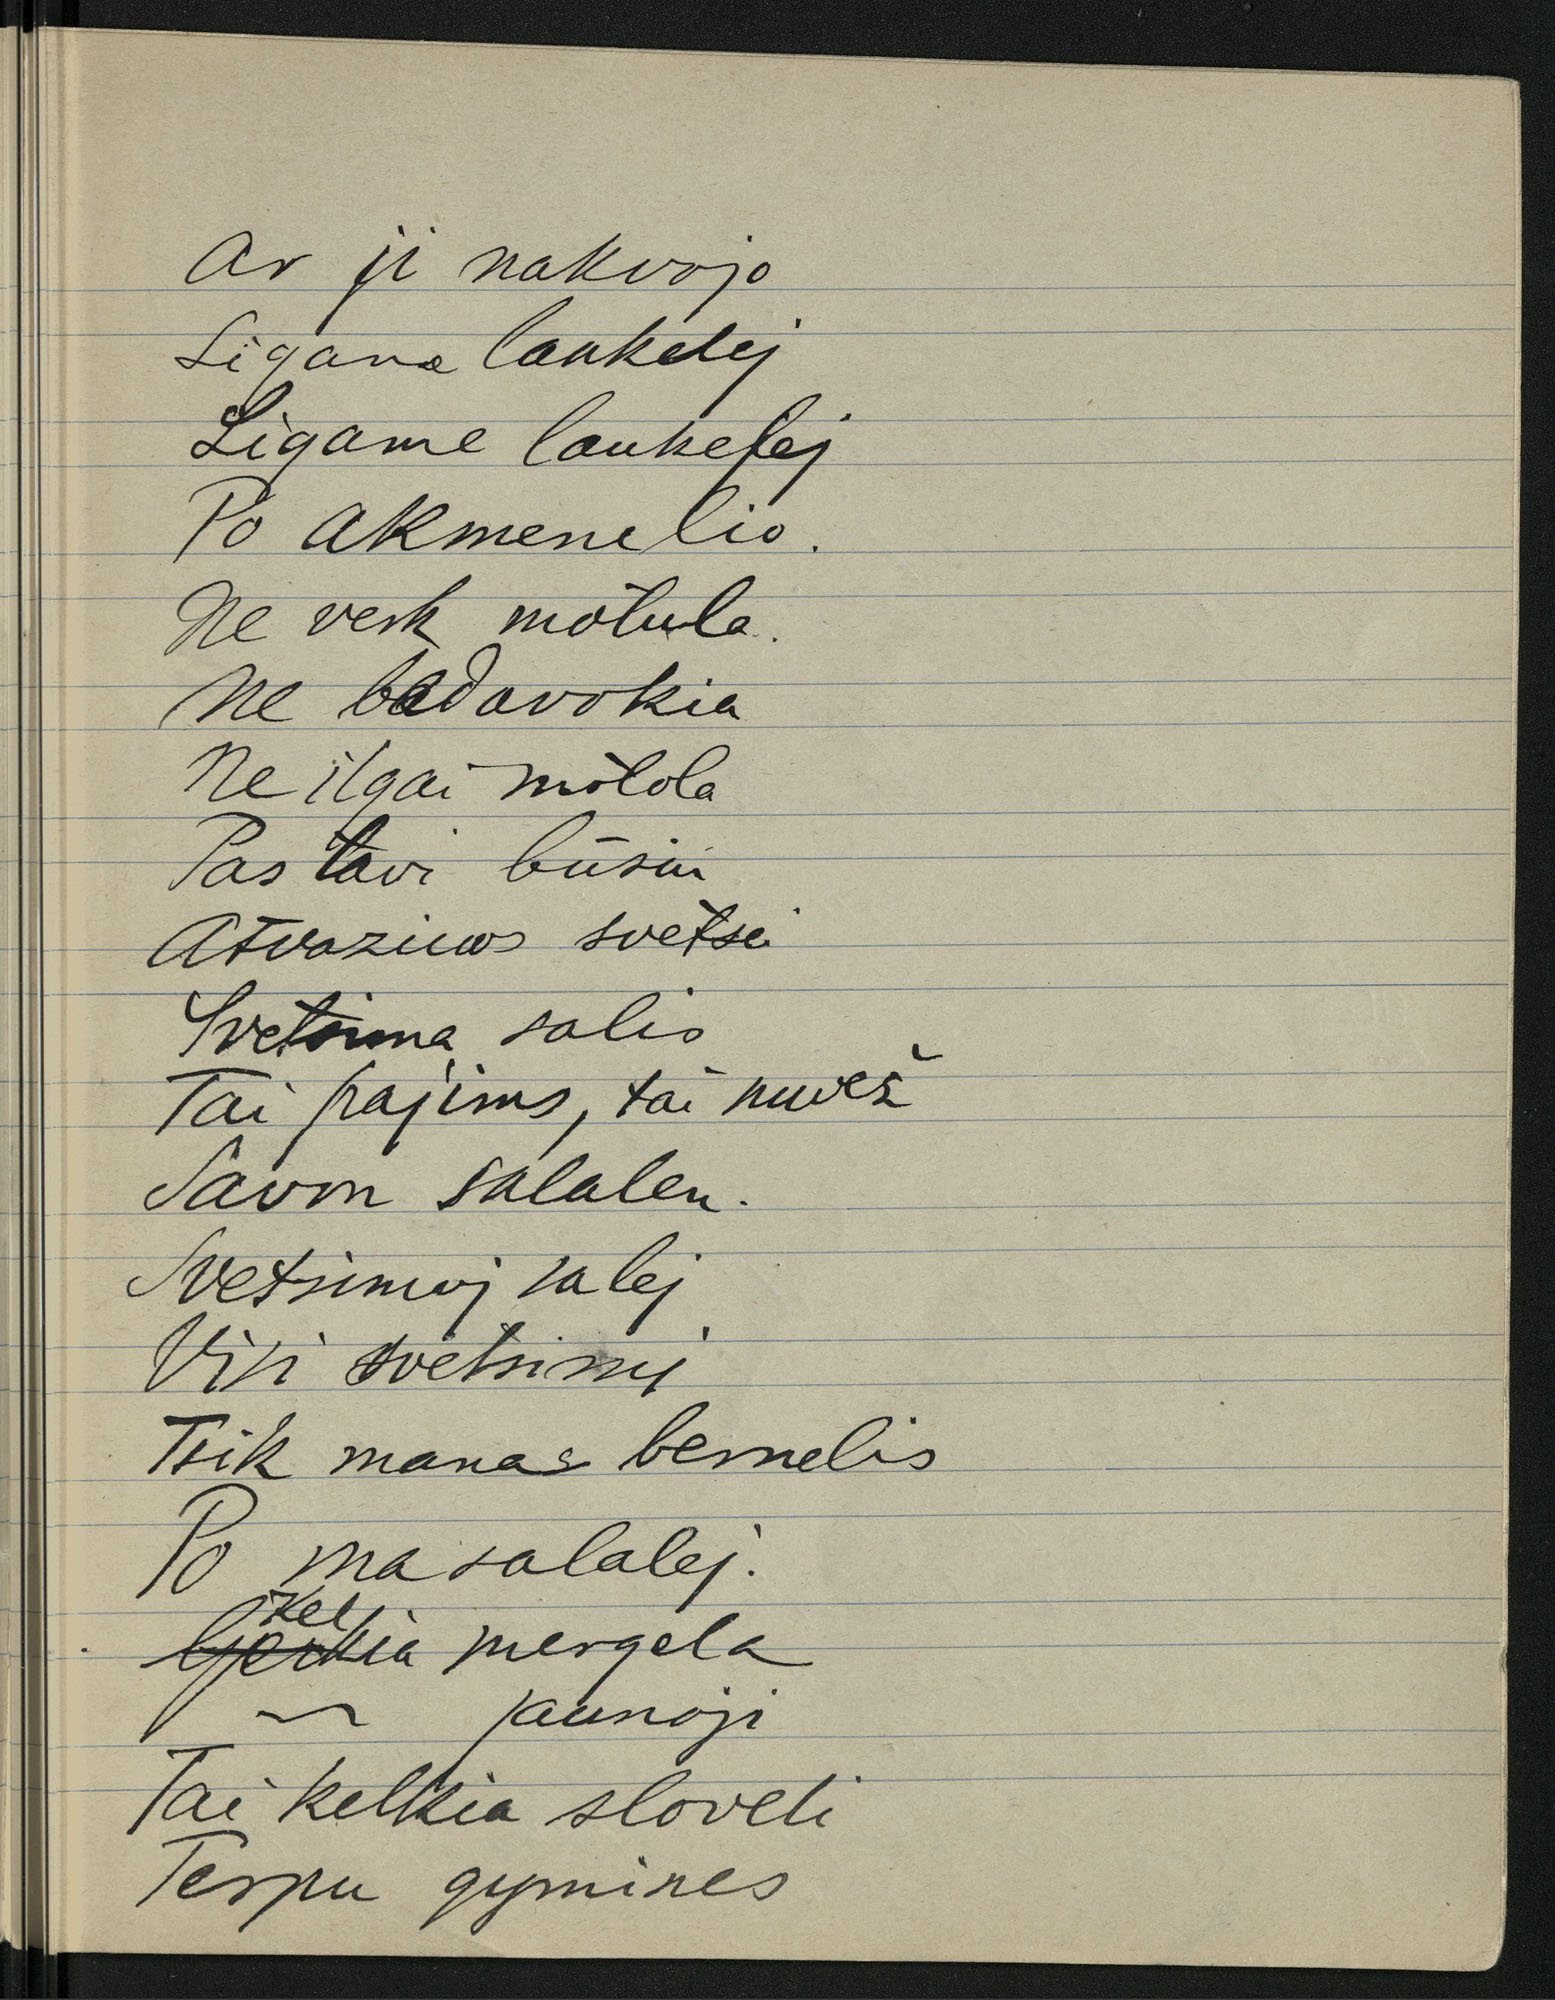 Ar ji nakvojo
Ligame laukelej
Ligame laukelej
Po akmenelio.
Ne verk mōtula.
Ne bedavokia
Ne ilgai mōtola
Pas tavi būsiu
Atvaziuos svetsei
Svetsima salis
Tai pajims, tai nuveš
Savon salalen.
Svetsimoj salej
Visi svetsimi
Tsik manas bernelis
Po ma salalej.
Kelkia mergela
〜 jaunoji
Tai kelkia sloveti
Terpu gymines